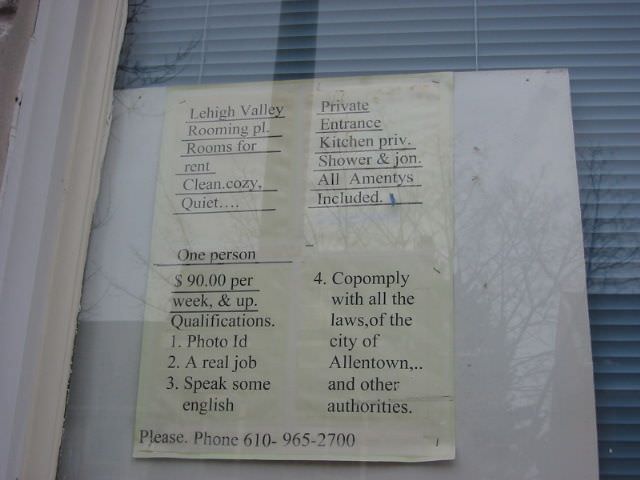 Lehigh Valley
Rooming pl.
Rooms for
rent
Clean.cozy,
Quiet....
Private
Entrance
Kitchen priv.
Shower & jon.
All Amentys
Included.
One person
$ 90.00 per
week, & up.
Qualifications.
1. Photo Id
2. A real job
3. Speak some
english
4. Copomply
with all the
laws,of the
city of
Allentown,..
and other
authorities.
Please. Phone 610- 965-2700